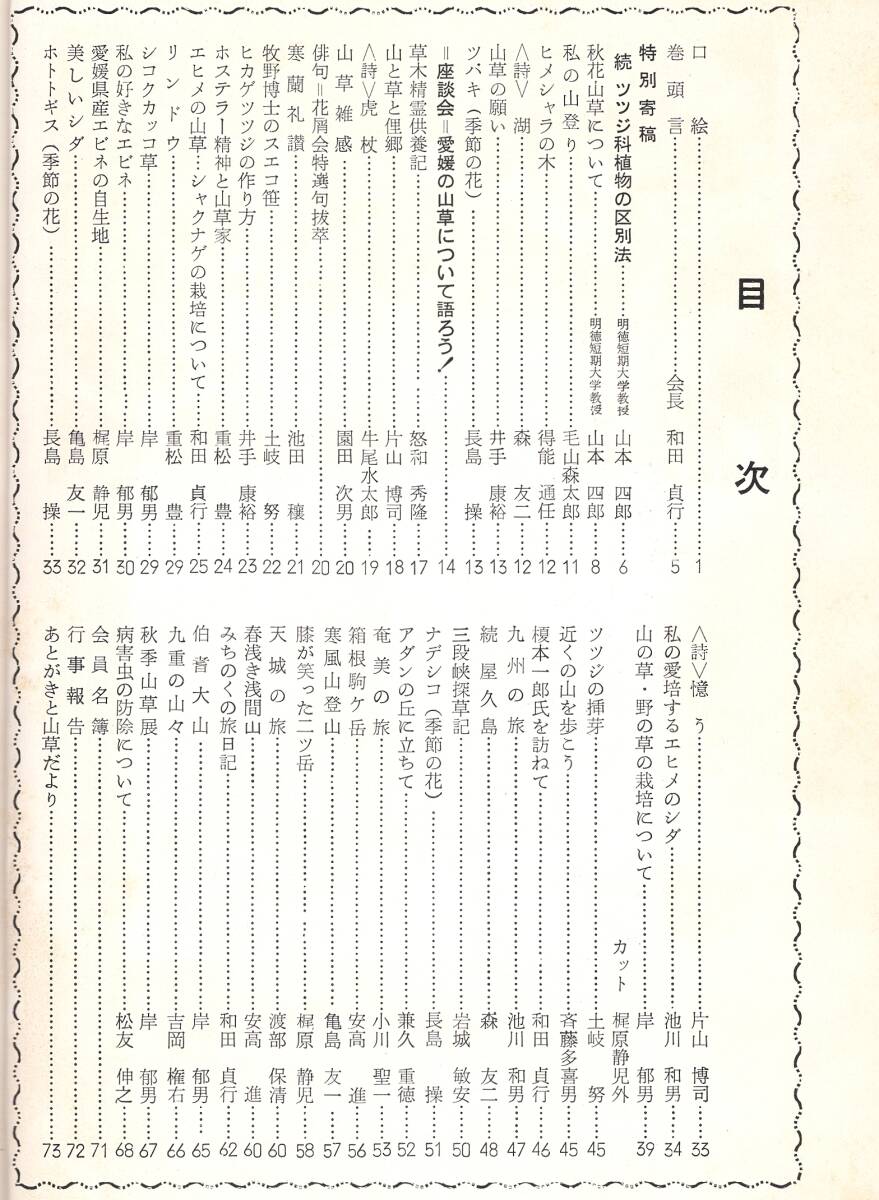 目次
口絵……1
巻頭言……会長 和田 貞行……5
特別寄稿
続 ツツジ科植物の区別法……明徳短期大学教授 山本 四郎……6
秋花山草について……明徳短期大学教授 山本 四郎……8
私の山登り……毛山森太郎……11
ヒメシャラの木……得能 通任……12
〈詩〉湖……森 友二……12
山草の願い……井手 康裕……13
ツバキ(季節の花)……長島 操……13
=座談会=愛媛の山草について語ろう!……14
草木精霊供養記……怒和 秀隆……17
山と草と俚郷……片山 博司……18
〈詩〉虎杖……牛尾水太郎……19
山草雑感……園田 次男……20
俳句=花屑会特選句抜萃……20
寒蘭礼讃……池田 穣……21
牧野博士のスエコ笹……土岐 努……22
ヒカゲツツジの作り方……井手 康裕……23
ホステラー精神と山草家……重松 豊……24
エヒメの山草…シャクナゲの栽培について……和田 貞行……25
リンドウ……重松 豊……29
シコクカッコ草……岸 郁男……29
私の好きなエビネ……岸 郁男……30
愛媛県産エビネの自生地……梶原 静児……31
美しいシダ……亀島 友一……32
ホトトギス(季節の花)……長島 操……33
〈詩〉憶う……片山 博司……33
私の愛培するエヒメのシダ……池川 和男……34
山の草・野の草の栽培について……岸 郁男……39
カット 梶原静児外
ツツジの挿芽……土岐 努……45
近くの山を歩こう……斉藤多喜男……45
榎本一郎氏を訪ねて……和田 貞行……46
九州の旅……池川 和男……47
続 屋久島……森 友二……48
三段峡探草記……岩城 敏安……50
ナデシコ(季節の花)……長島 操……51
アダンの丘に立ちて……兼久 重徳……52
奄美の旅……小川 聖一……53
箱根駒ケ岳……安高 進……56
寒風山登山……亀島 友一……57
膝が笑った二ツ岳……梶原 静児……58
天城の旅……渡部 保清……60
春浅き浅間山……安高 進……60
みちのくの旅日記……和田 貞行……62
伯耆大山……岸 郁男……65
九重の山々……吉岡 権右……66
秋季山草展……岸 郁男……67
病害虫の防除について……松友 伸之……68
会員名簿……71
行事報告……72
あとがきと山草だより……73